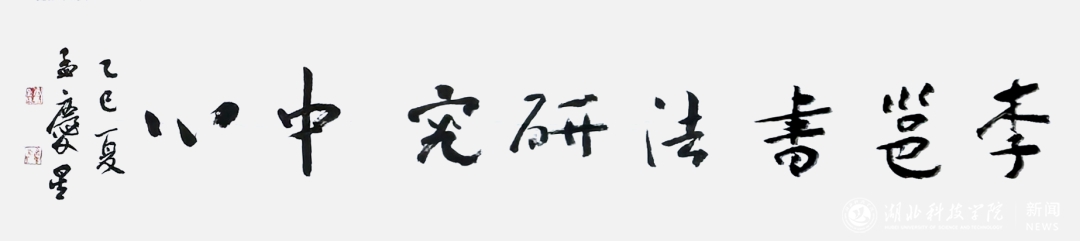 李邕書法研究中心
乙巳夏
孟慶星
湖北科技学院
新闻
NEWS